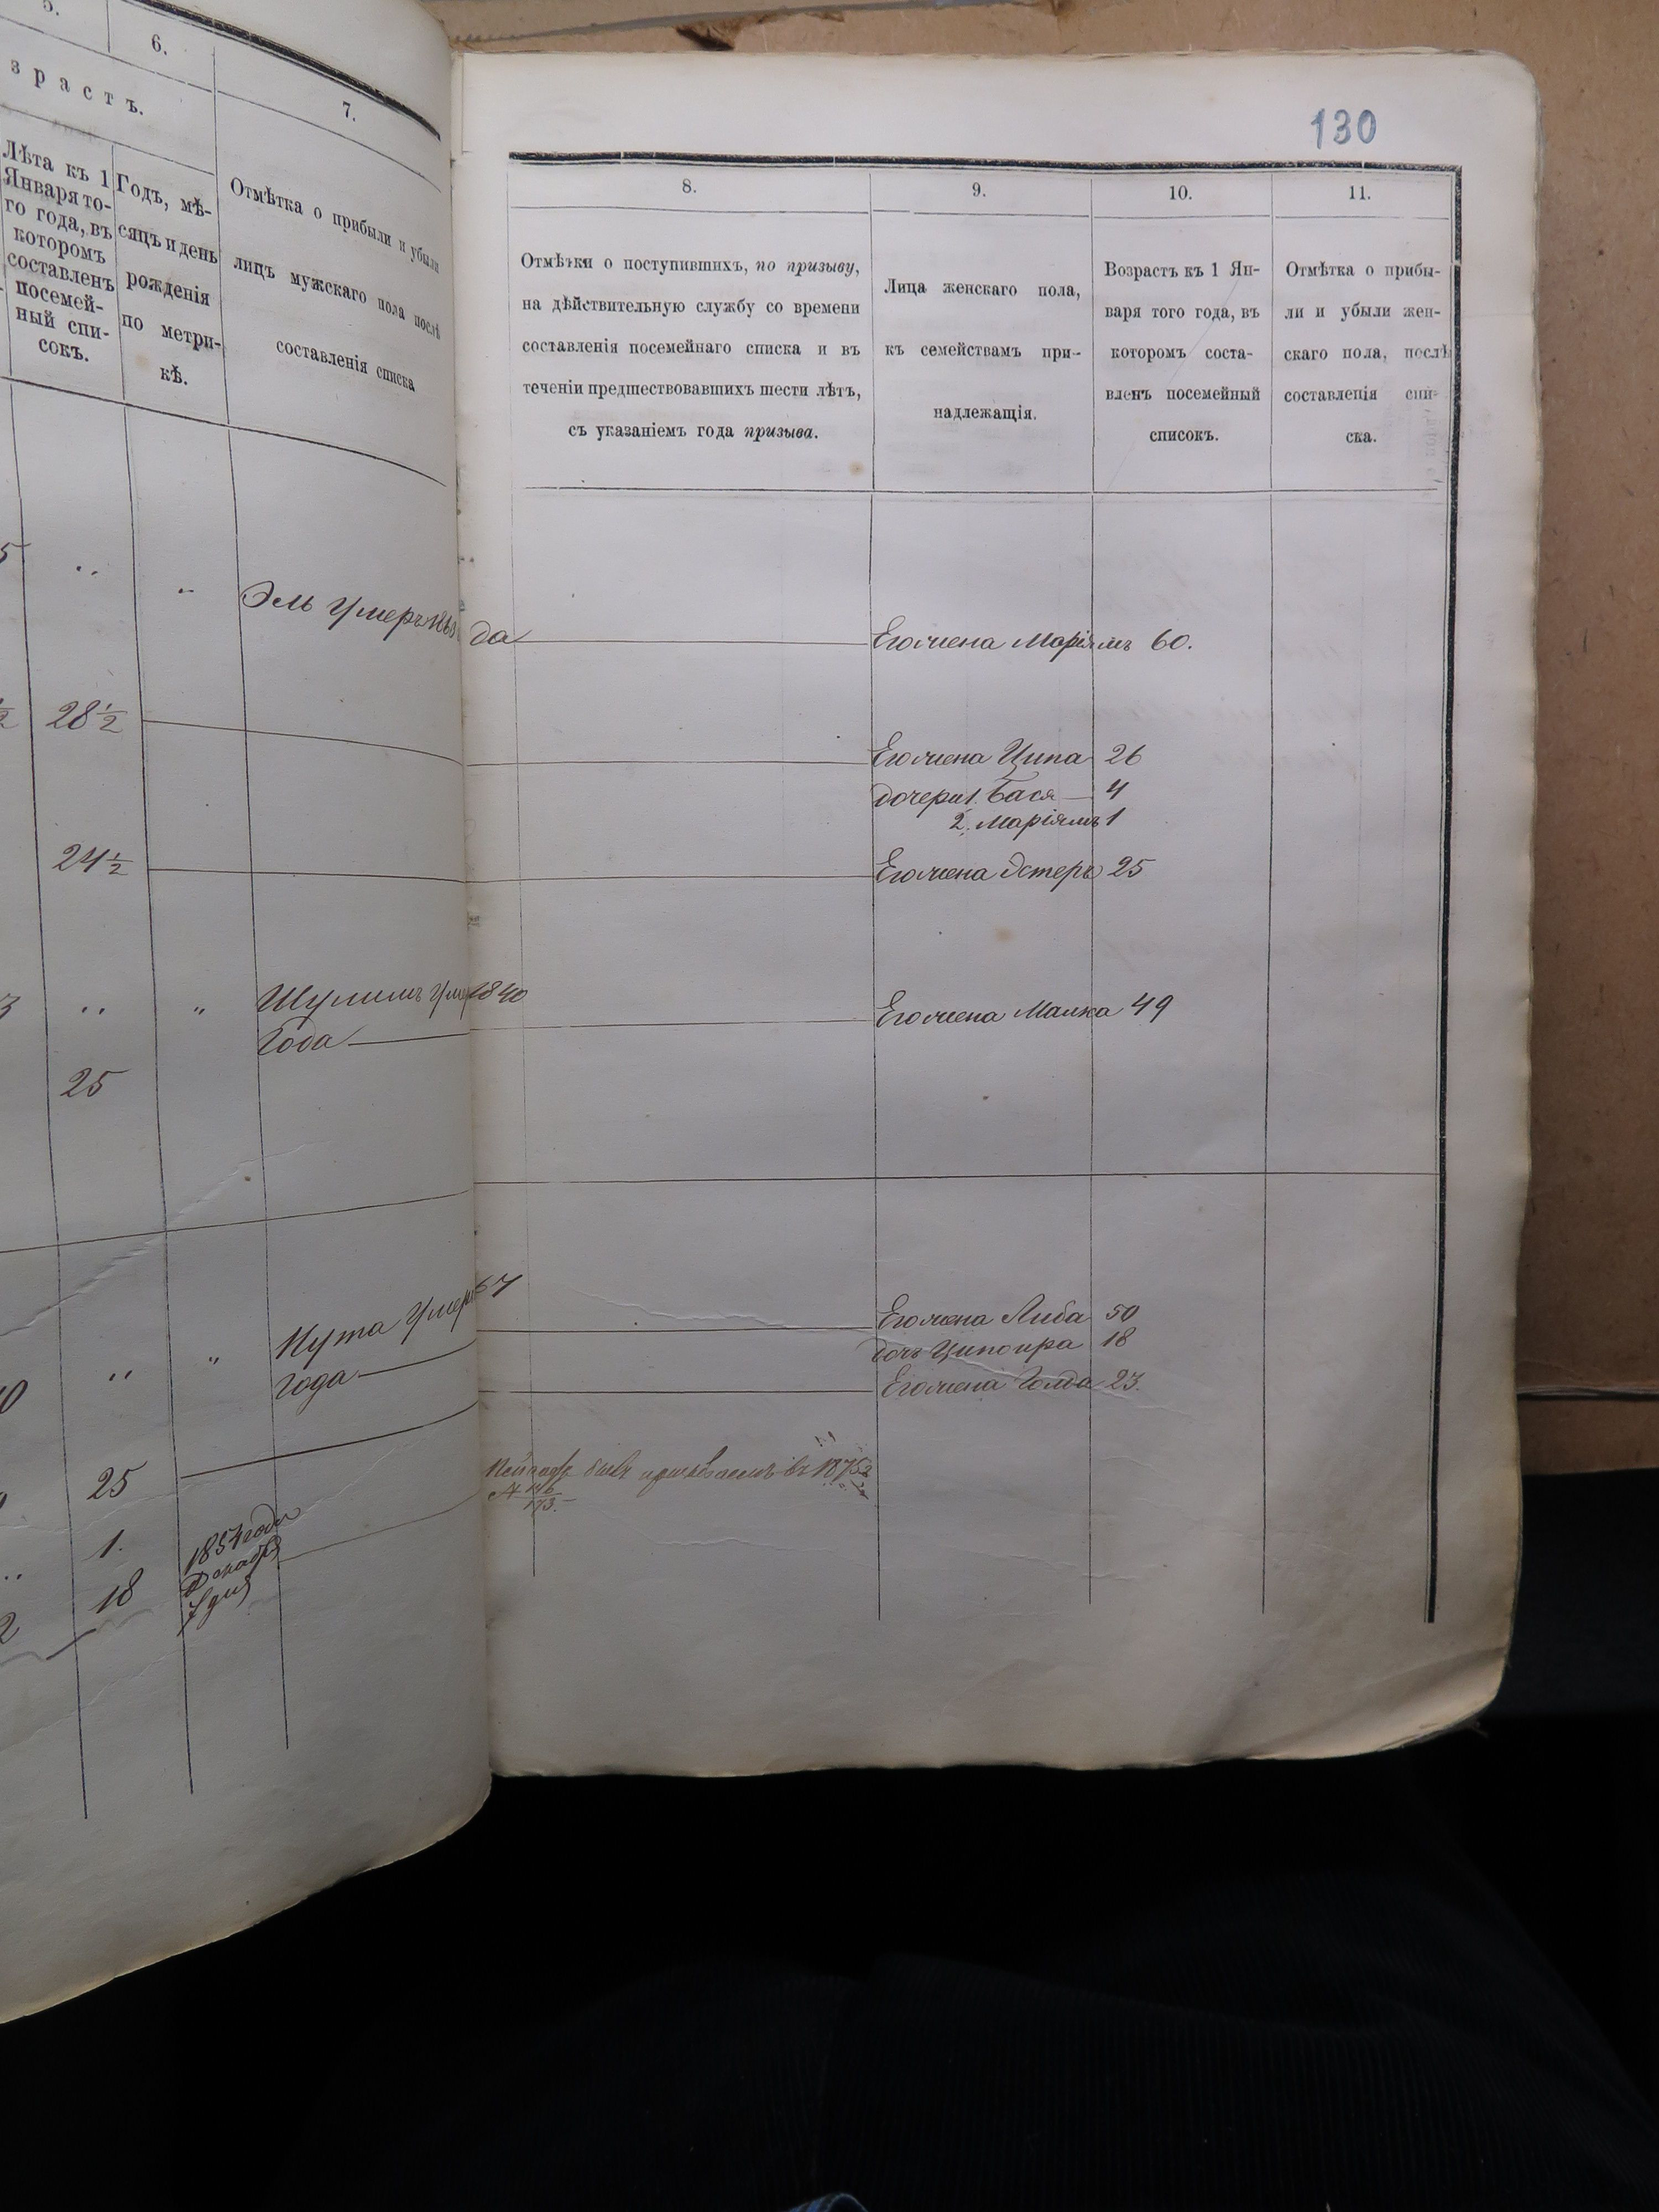 5.
6.
7.
зрастъ.
Лѣта къ 1
Января то-
го года, въ
которомъ
составленъ
посемей-
ный спи-
сокъ.
Годъ, мѣ-
сяцъ и день
рожденія
по метри-
кѣ.
Отмѣтка о прибыли и убыли
лицъ мужскаго пола послѣ
составленія списка
130
8.
9.
10.
11.
Отмѣтки о поступившихъ, по призыву,
на дѣйствительную службу со времени
составленія посемейнаго списка и въ
теченіи предшествовавшихъ шести лѣтъ,
съ указаніемъ года призыва.
Лица женскаго пола,
къ семействамъ при-
надлежащія.
Возрастъ къ 1 Ян-
варя того года, въ
которомъ соста-
вленъ посемейный
списокъ.
Отмѣтка о прибы-
ли и убыли жен-
скаго пола, послѣ
составленія спи-
ска.
5 .. " Эль Умеръ да Его жена Маріямъ 60.
28½
Его жена Ципа 26
дочери 1. Бася 4
2. Маріямъ 1
24½ Его жена Эстеръ 25
3 .. " Шулимъ Ум 1840
Года Его жена Малка 49
25
.. " Нута Умеръ 67
года
Его жена Либа 50
дочь Ципойра 18
Его жена Голда 23.
25
1.
18 1854 года
Декабря
7 дня
былъ въ 1875
№ 146
173.